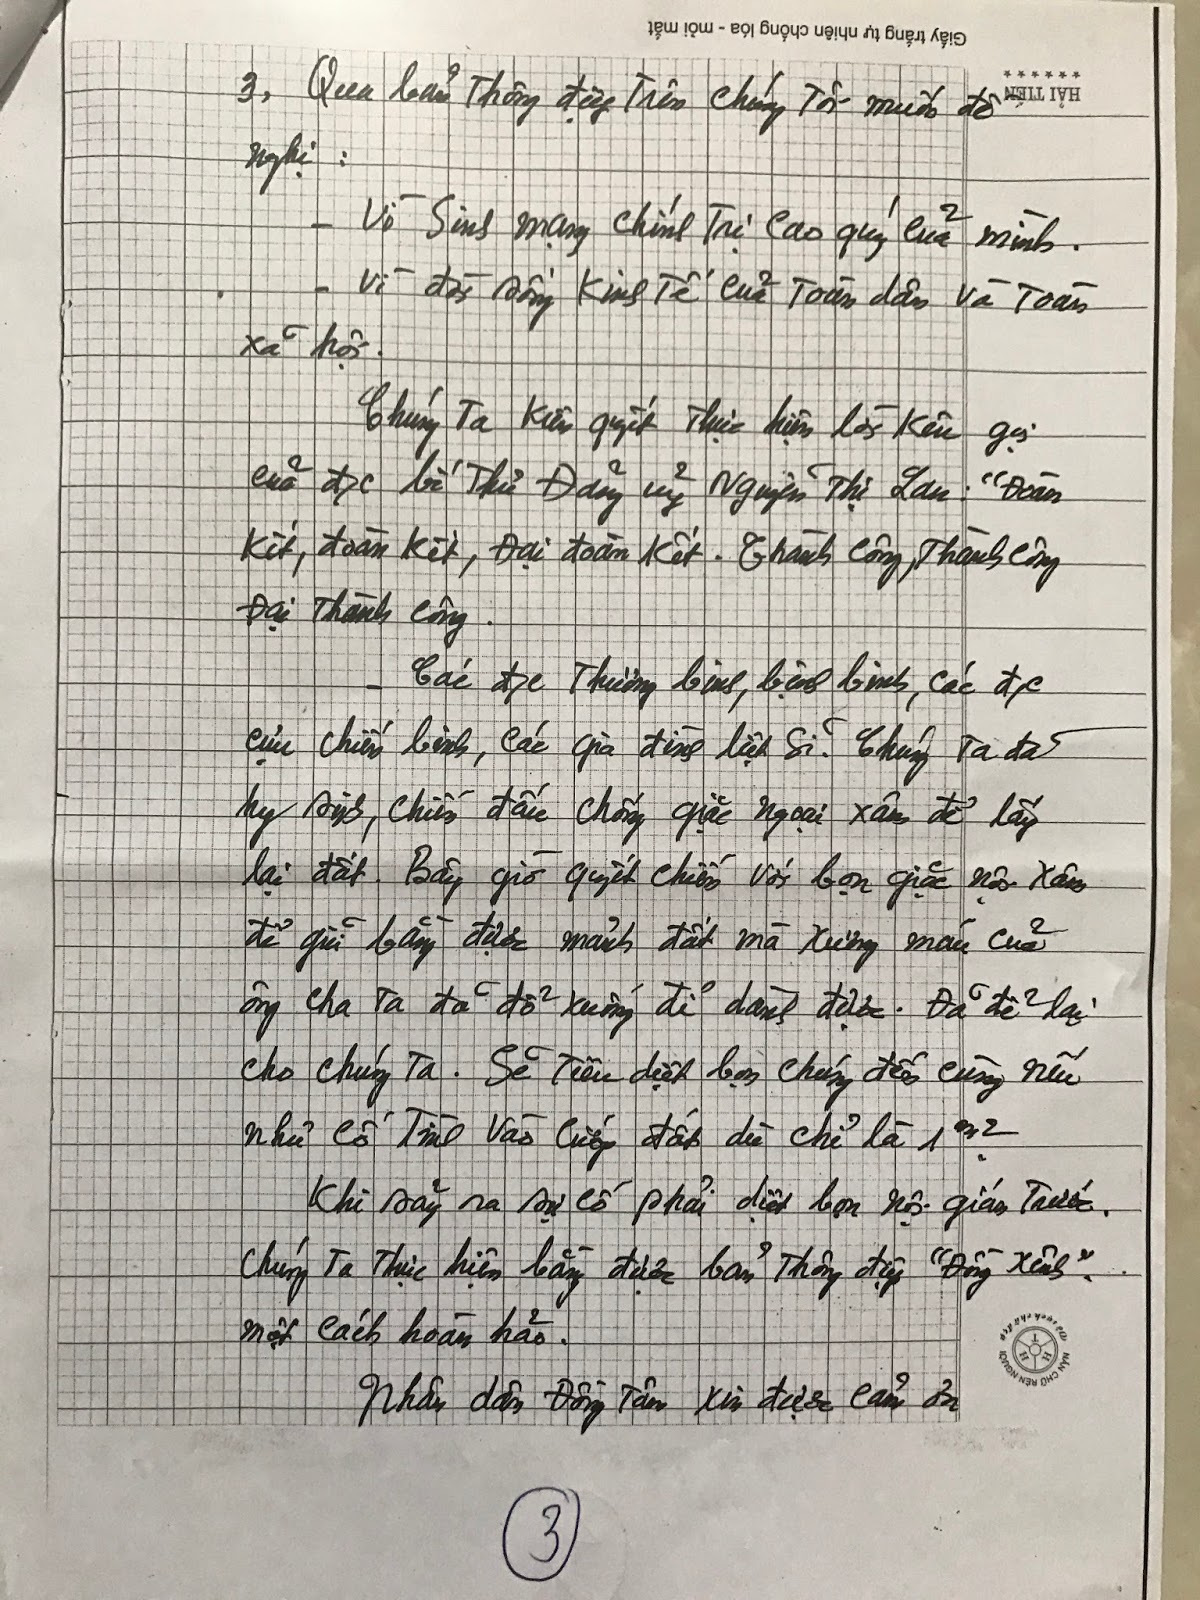 Giấy trắng tự nhiên chống lóa - mỏi mắt
HẢI TIẾN
3, Qua bản Thông điệp Trên chúng Tôi muốn đề
nghị :
- Vì Sinh mạng chính Trị Cao quý của mình.
- Vì đời sống Kinh Tế của Toàn dân và Toàn
xã hội.
Chúng Ta Kiên quyết Thực hiện lời Kêu gọi
của đ/c bí Thư Đảng uỷ Nguyễn Thị Lan : "Đoàn
Kết, đoàn Kết, Đại đoàn Kết. Thành Công, Thành Công
Đại Thành Công.
- Các đ/c Thương binh, bệnh binh, các đ/c
cựu chiến binh, các gia đình liệt Sĩ. Chúng Ta đã
hy sinh, chiến đấu chống giặc ngoại xâm để lấy
lại đất. Bây giờ quyết chiến với bọn giặc nội xâm
để giữ bằng được mảnh đất mà xương máu của
ông cha Ta đã đổ xuống để dành được. Đã để lại
cho chúng Ta. Sẽ Tiêu diệt bọn chúng đến cùng nếu
như Cố Tình vào Cướp đất dù chỉ là 1 m2
Khi sảy ra sự Cố phải diệt bọn nội gián Trước.
Chúng Ta Thực hiện bằng được bản Thông điệp "Đồng Xênh".
một Cách hoàn hảo.
Nhân dân Đồng Tâm xin được Cảm ơn
NẮN CHỮ RÈN NGƯỜI
H T H
3